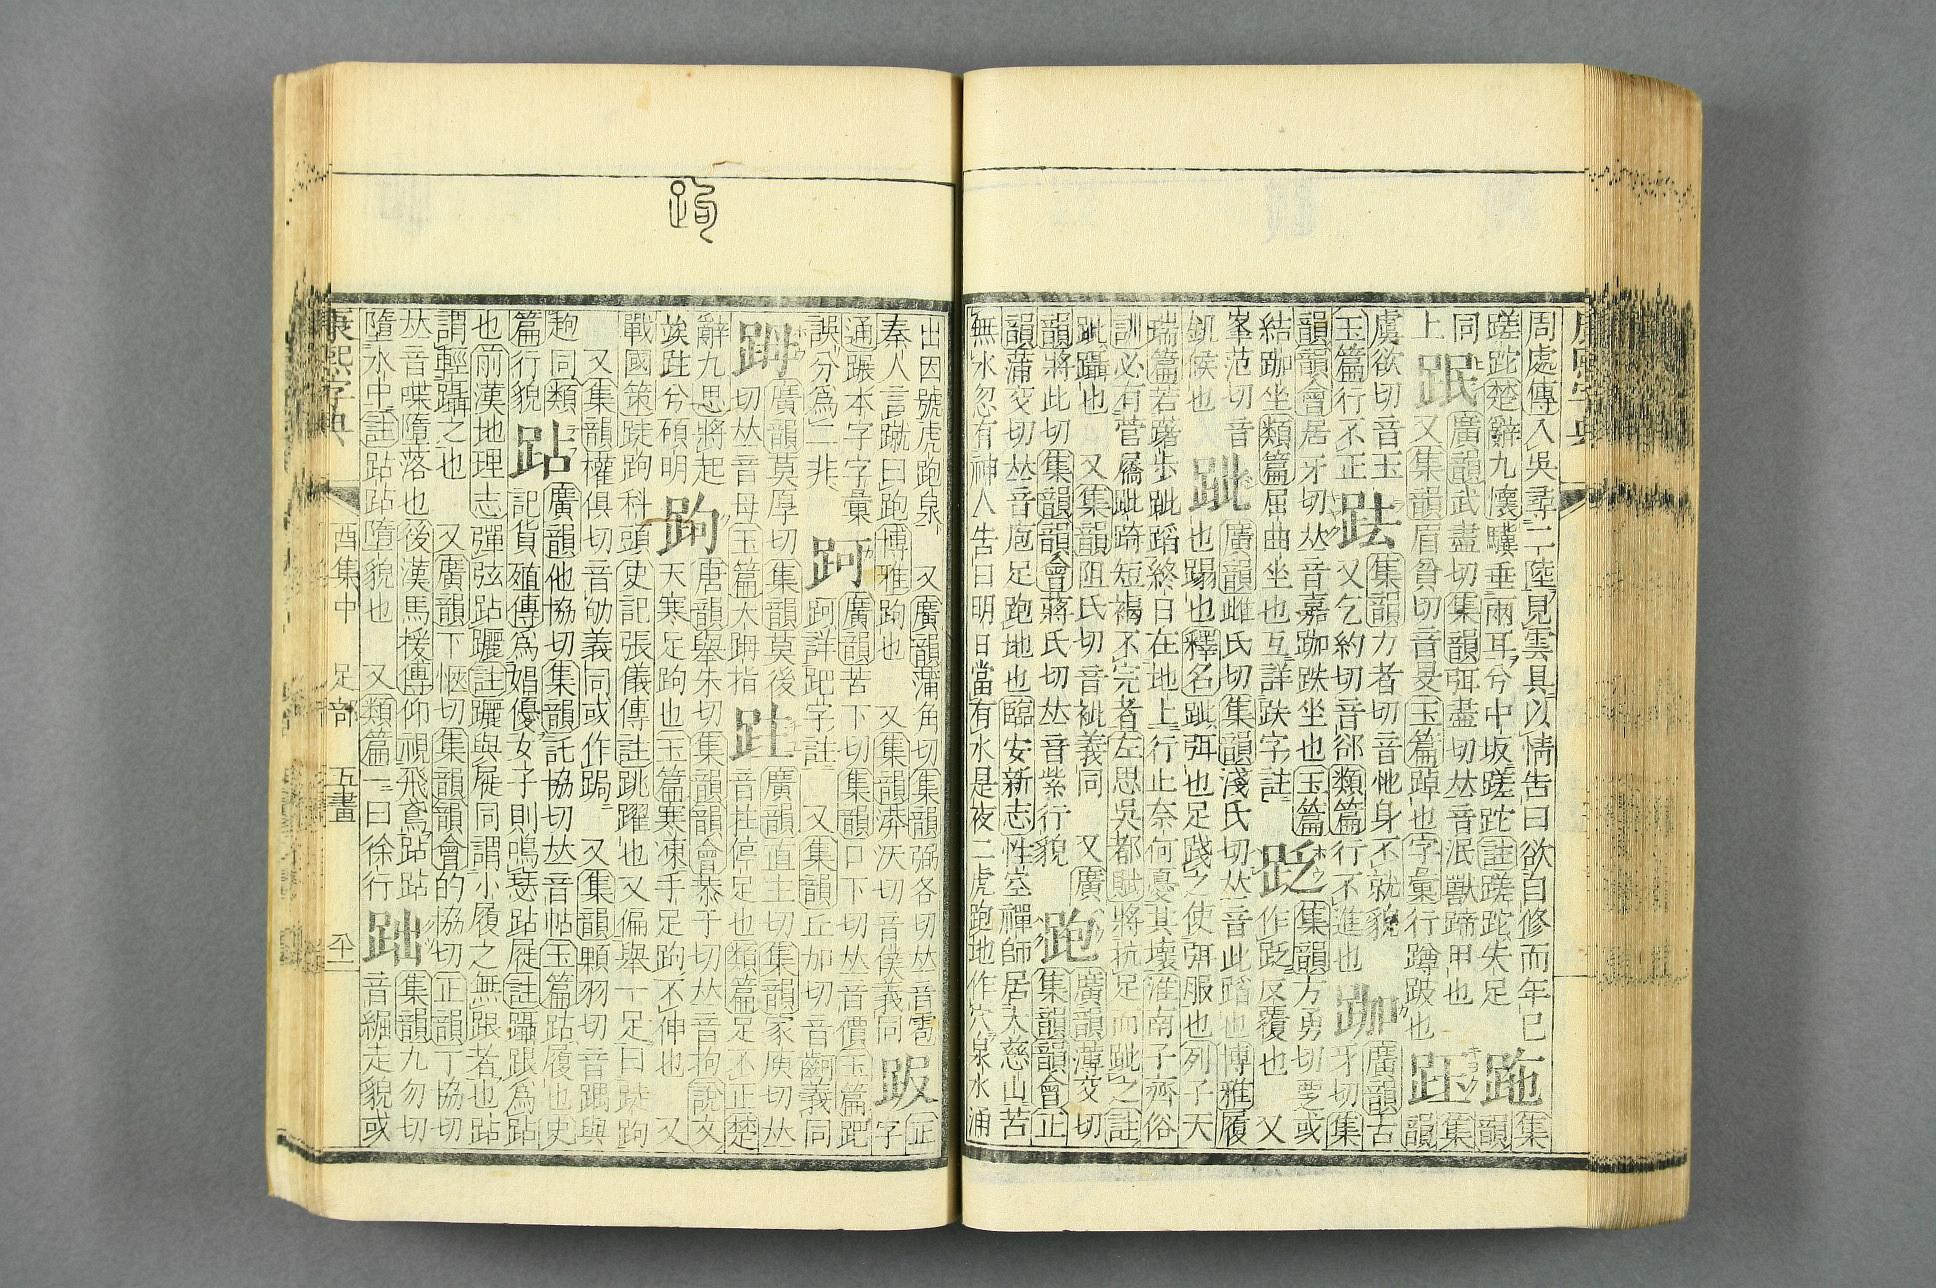 周處傳入吳尋二陸見雲具以情告曰欲自修而年已
蹉跎楚辭九懷驥垂兩耳兮中坂蹉跎註蹉跎失足
跑集韻
同上
跟
廣韻武盡切集韻弭盡切𠀤音泯獸蹄甲也
又集韻眉貧切音旻玉篇踔也字彙行蹲跛也
集韻
虞欲切音玉
玉篇行不正
集韻力者切音他身不就貌
又乞約切音卻類篇行不進也
跏
廣韻古牙切集
韻韻會居牙切𠀤音嘉跏趺坐也玉篇
結跏坐類篇屈曲坐也互詳趺字註
集韻方勇切覂或
作䟪反覆也
又峯范切音
釩侯也
跐
廣韻雌氏切集韻淺氏切𠀤音此蹈也博雅履
也蹋也釋名跐弭也足踐之使弭服也列子天
瑞篇若躇步跐蹈終日在地上行止奈何憂其壞淮南子齊俗
訓必有菅屩跐踦短褐不完者左思吳都賦將抗足而跐之註
跐躡也 又集韻阻氏切音批義同 又廣
韻將此切集韻韻會蔣氏切𠀤音紫行貌
跑
廣韻薄交切
集韻韻會正
韻蒲交切𠀤音庖足跑地也臨安新志性空禪師居大慈山苦
無水忽有神人告曰明日當有水是夜二虎跑地作穴泉水涌
出因號虎跑泉 又廣韻蒲角切集韻弼各切𠀤音雹
秦人言蹴曰跑博雅跑也 又集韻滂沃切音僕義同
䟺
正字
通蹍本字字彙
誤分爲二非
跒
廣韻苦下切集韻口下切𠀤音價玉篇跁
跒詳跁字註 又集韻丘加切音齣義同
踇
廣韻莫厚切集韻莫後
切𠀤音母玉篇大踇指
跓
廣韻直主切集韻冢庾切𠀤
音拄停足也類篇足不正楚
辭九思將起
竢跓兮碩明
跔
唐韻舉朱切集韻韻會恭于切𠀤音拘說文
天寒足跔也玉篇寒凍手足跔不伸也 又
戰國策跿跔科頭史記張儀傳註跳躍也又偏舉一足曰跿跔
又集韻權俱切音劬義同或作跼 又集韻顆羽切音踽與
趜同類
篇行貌
跕
廣韻他協切集韻託協切𠀤音帖玉篇跕履也史
記貨殖傳爲娼優女子則鳴瑟跕屣註躡跟爲跕
也前漢地理志彈弦跕躧註躧與屣同謂小履之無跟者也跕
謂輕躡之也 又廣韻丁愜切集韻韻會的協切正韻丁協切
𠀤音喋墮落也後漢馬援傳仰視飛鳶跕跕
墮水中註跕跕墮貌也 又類篇一曰徐行
𨀎
集韻九勿切
音𦀖走貌或
康熙字典 酉集中 足部 五畫